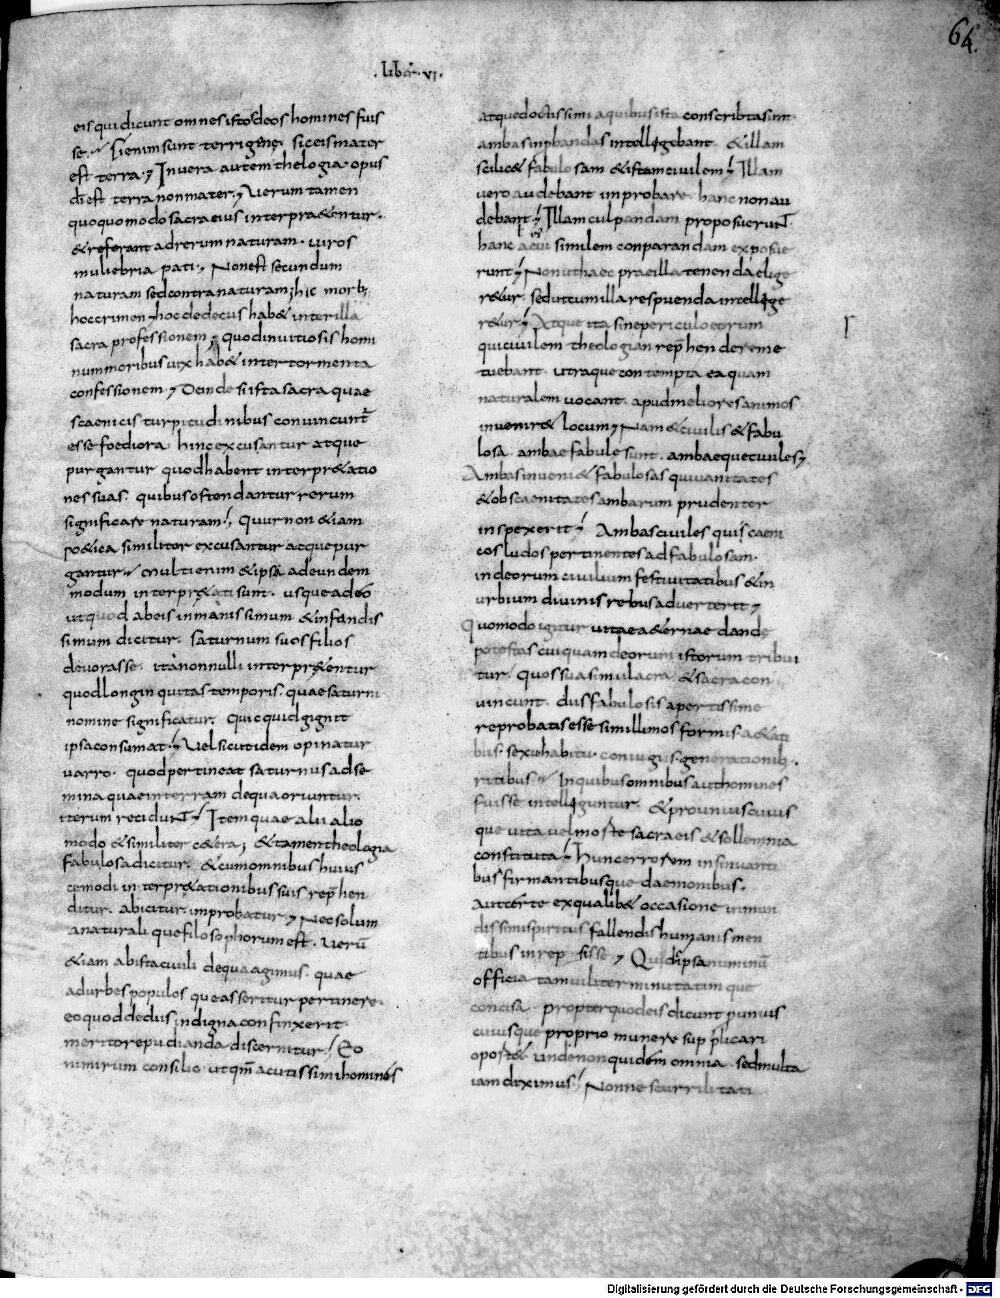 64.
. liber . vi .
eis qui dicunt omnes istos deos homines fuis
se. Hi enim sunt terrigenę. sic eis mater
est terra. In vera autem theologia. opus
dei est terra non mater. Verum tamen
quoquo modo sacra eius interpraetentur.
& referant ad rerum naturam. viros
muliebria pati. Non est secundum
naturam sed contra naturam; hic morb;
hoc crimen hoc dedecus hab& inter illa
sacra professionem quod in vitiosis homi
num moribus vix hab& inter tormenta
confessionem. Deinde si ista sacra quae
scaenicis turpitudinibus convincunt
esse foediora hinc excusantur atque
purgantur quod habent interpr&atio
nes suas. quibus ostendantur rerum
significare naturam. Quur non &iam
po&ica similiter excusantur atque pur
gantur. Multi enim & ipsa ad eundem
modum interpr&ati sunt. usque adeo
ut quod ab eis inmanissimum & infandis
simum dicitur. Saturnum suos filios
devorasse. ita nonnulli interpr&entur
quod longinquitas temporis. quae saturni
nomine significatur. Quicquid gignit
ipsa consumat. Vel sicut idem opinatur
varro. quod pertineat saturnus ad se
mina quae in terram de qua oriuntur.
iterum recidunt. Item quae alii alio
modo & similiter c&era; & tamen theologia
fabulosa dicitur. & cum omnibus huius
cemodi interpr&ationibus suis reprehen
ditur. abicitur. improbatur. Nec solum
a naturali que filosophorum est. verū
&iam ab ista civili de qua agimus. quae
ad urbes populos que asseritur pertinere.
eo quod de diis indigna confinxerit.
merito repudianda discernitur. Eo
nimirum consilio ut qm̄ acutissimi homines
atque doctissimi a quibus ista conscribta sint
ambas inprobandas intellegebant. & illam
scilic& fabulosam & istam civilem. Illam
vero audebant improbare. hanc non au
debant. Illam culpandam proposuerunt.
hanc aeius similem conparandam exposue
runt. Non ut haec prae illa tenenda elige
r&ur. sed ut cum illa respuenda intellege
r&ur. Atque ita sine periculo eorum
qui civilem theologian reprehendere me
tuebant. utraque contempta ea quam
naturalem vocant. apud meliores animos
invenir& locum. Nam & civilis & fabu
losa. ambae fabulosę sunt. ambaeque civiles.
Ambas inveni& fabulosas qui vanitates
& obscaenitates ambarum prudenter
inspexerit. Ambas civiles qui scaeni
cos ludos pertinentes ad fabulosam.
in deorum civilium festivitatibus & in
urbium divinis rebus adverterit.
Quomodo igitur vitae a&ernae dandę
potestas cuiquam deorum istorum tribui
tur. Quos sua simulacra. & sacra con
vincunt. diis fabulosis apertissime
reprobatis esse simillimos formis. a&ati
bus. sexu habitu. coniugiis. generationib;.
ritibus. In quibus omnibus aut homines
fuisse intelleguntur. & pro uniuscuius
que vita vel morte sacra eis & sollemnia
constituta. Hunc errorem insinuanti
bus firmantibusque daemonibus.
Aut certe ex qualib& occasione inmun
dissimi spiritus fallendis humanis men
tibus inrepsisse. Quid ipsa numinū
officia tam viliter minutatim que
concisa. propter quod eis dicunt pro unius
cuiusque proprio munere supplicari
oportet unde non quidem omnia. sed multa
iam diximus. Nonne scurrilitati
Digitalisierung gefördert durch die Deutsche Forschungsgemeinschaft - DFG